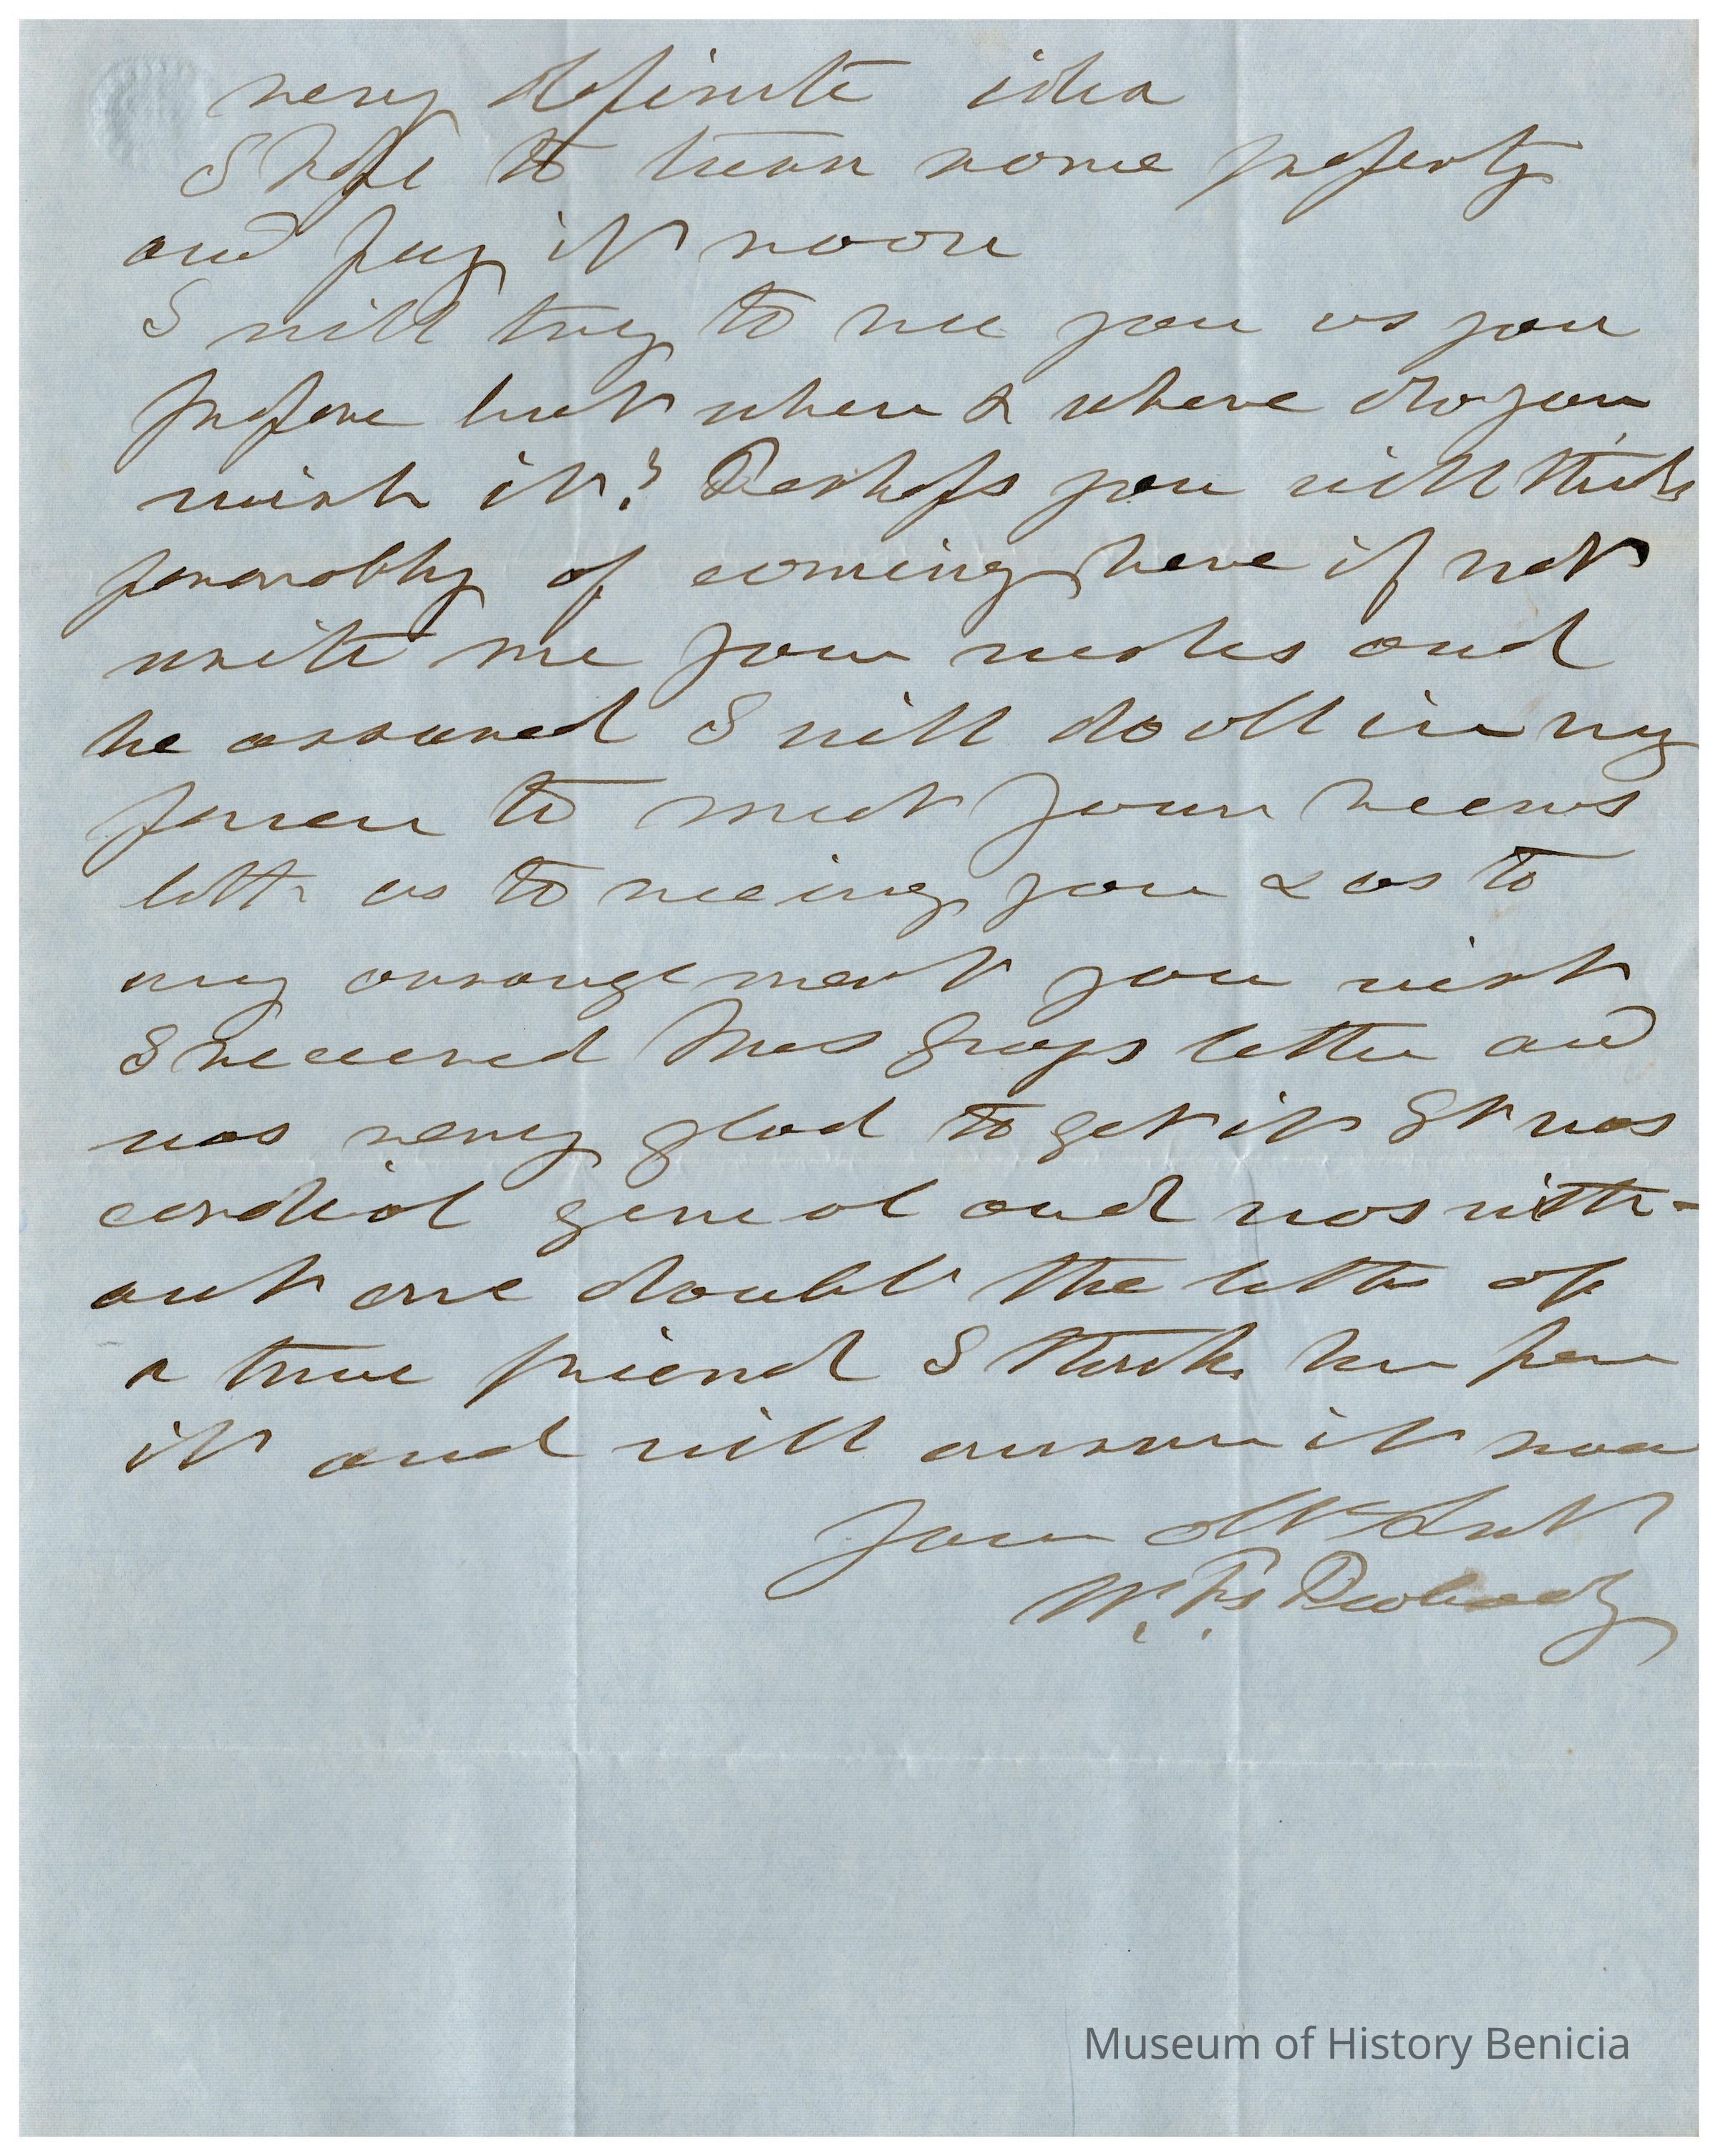 very definite idea
I hope to turn some property
and pay it soon
I will try to see you as you
propose but when & where do you
wish it? Perhaps you will think
favorably of coming here if not
write me your wishes and
be assured I will do all in my
power to meet your views
both as to seeing you & as to
any arrangement you wish
I received Mrs Grays letter and
was very glad to get it It was
cordial genial and was with-
out one doubt the letter of
a true friend I thank her for
it and will answer it soon
Your Obt Servt
W. Peabody
Museum of History Benicia